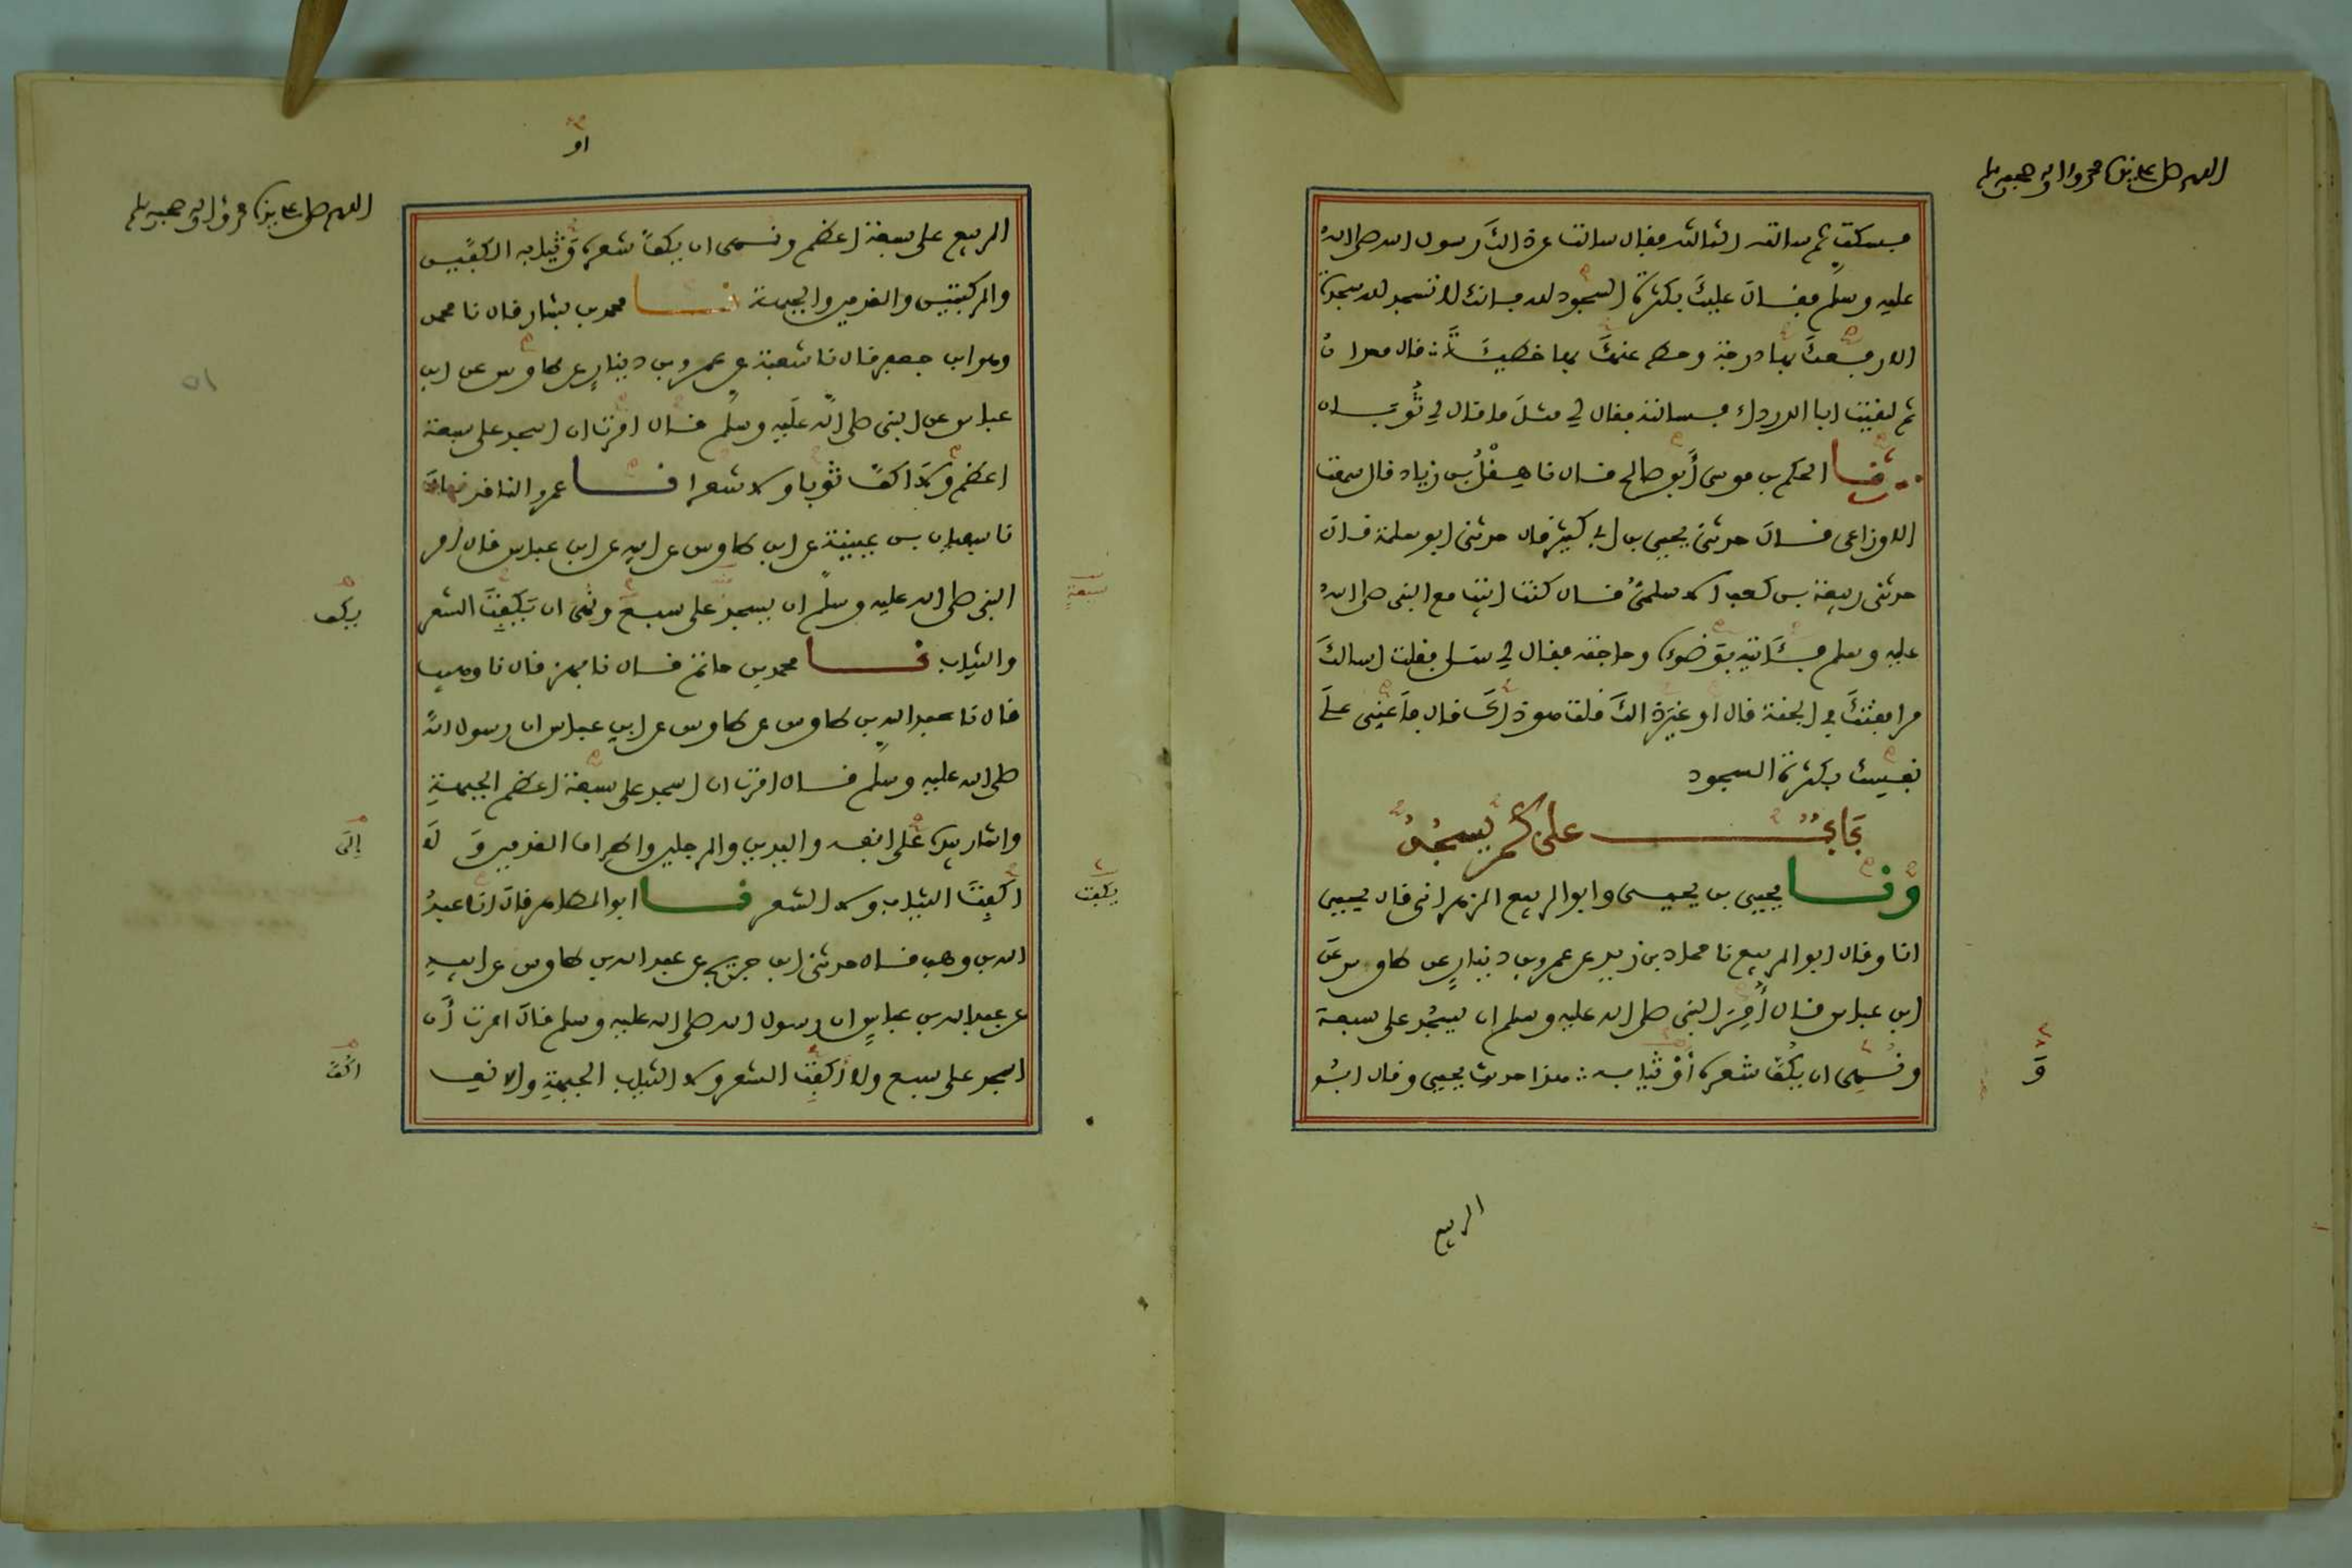 اللهم صل على سيدنا محمد وآله وصحبه وسلم
فسكت ثم سالته الثالثة فقال سالت عن ذالك رسول الله صلى الله
عليه وسلم فقال عليك بكثرة السجود لله فانك لا تسجد لله سجدة
الا رفعك بها درجة وحط عنك بها خطيئة قال معدان
ثم لقيت ابا الدرداء فسالته فقال لي مثل ما قال لي ثوبان
نا الحكم بن موسى أبو صالح قال نا هقل بن زياد قال سمعت
الاوزاعي قال حدثني يحيى بن ابي كثير قال حدثني ابو سلمة قال
حدثني ربيعة بن كعب الاسلمي قال كنت ابيت مع النبي صلى الله
عليه وسلم فأتيته بوضوئه وحاجته فقال لي سل فقلت اسالك
مرافقتك في الجنة قال أو غير ذالك قلت هو ذاك قال فأعني على
نفسك بكثرة السجود
باب على كم يسجد
ونا يحيى بن يحيى وابو الربيع الزهراني قال يحيى
انا وقال ابو الربيع نا حماد بن زيد عن عمرو بن دينار عن طاوس عن
ابن عباس قال أمر النبي صلى الله عليه وسلم ان يسجد على سبعة
ونهي ان يكف شعره أو ثيابه هذا حديث يحيى وقال ابو
و
الربيع
او
اللهم صل على سيدنا محمد وآله وصحبه وسلم
الربيع على سبعة اعظم ونهى ان يكف شعره وثيابه الكفين
والركبتين والقدمين والجبهة نا محمد بن بشار قال نا محمد
وهو ابن جعفر قال نا شعبة عن عمرو بن دينار عن طاوس عن ابن
عباس عن النبي صلى الله عليه وسلم قال امرت ان اسجد على سبعة
اعظم ولا اكف ثوبا ولا شعرا نا عمرو الناقد قال
نا سفيان بن عيينة عن ابن طاوس عن ابيه عن ابن عباس قال امر
النبي صلى الله عليه وسلم ان يسجد على سبع ونهي ان يكفت الشعر
والثياب نا محمد بن حاتم قال نا بهز قال نا وهيب
قال نا عبد الله بن طاوس عن طاوس عن ابن عباس ان رسول الله
صلى الله عليه وسلم قال امرت ان اسجد على سبعة اعظم الجبهة
واشار بيده على انفه واليدين والرجلين واطراف القدمين ولا
اكفت الثياب ولا الشعر نا ابو الطاهر قال انا عبد
الله بن وهب قال حدثني ابن جريج عن عبد الله بن طاوس عن ابيه
عن عبد الله بن عباس ان رسول الله صلى الله عليه وسلم قال امرت أن
اسجد على سبع ولا أكفت الشعر ولا الثياب الجبهة والانف
سبعة
يكف
إلى
يكفت
اكف
١٥